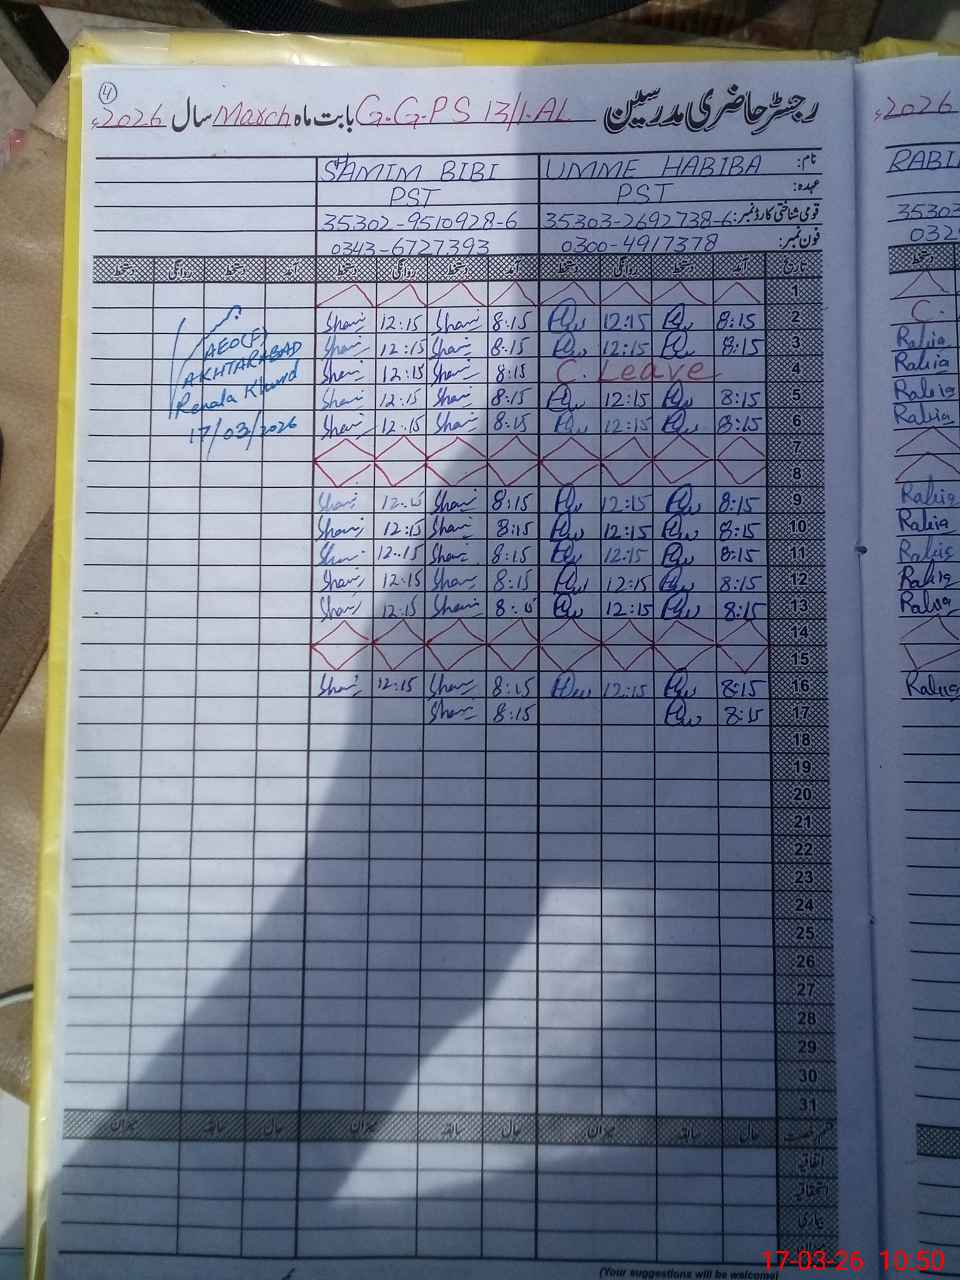 4
رجسٹر حاضری مدرسین G.G.P.S 13/1.AL بابت ماہ March سال 2026ء
نام: UMME HABIBA SHAMIM BIBI
عہدہ: PST PST
قومی شناختی کارڈ نمبر: 35303-2692738-6 35302-9510928-6
فون نمبر: 0300-4917378 0343-6727393
تاریخ آمد دستخط روانگی دستخط آمد دستخط روانگی دستخط آمد دستخط روانگی دستخط
1
2 8:15 12:15 8:15 Sham 12:15 Sham
3 8:15 12:15 8:15 Sham 12:15 Sham
4 C. Leave 8:15 Sham 12:15 Sham
5 8:15 12:15 8:15 Sham 12:15 Sham
6 8:15 12:15 8:15 Sham 12:15 Sham
7
8
9 8:15 12:15 8:15 Sham 12:15 Sham
10 8:15 12:15 8:15 Sham 12:15 Sham
11 8:15 12:15 8:15 Sham 12:15 Sham
12 8:15 12:15 8:15 Sham 12:15 Sham
13 8:15 12:15 8:15 Sham 12:15 Sham
14
15
16 8:15 12:15 8:15 Sham 12:15 Sham
17 8:15 8:15 Sham
18
19
20
21
22
23
24
25
26
27
28
29
30
31
AEO(F)
AKHTARABAD
Renala Khurd
17/03/2026
قسم رخصت حال سابقہ میزان حال سابقہ میزان حال سابقہ میزان
اتفاقیہ
استحقاقیہ
بیماری
میزان
(Your suggestions will be welcome)
2026
RABI
35303
032
دستخط
C.
Rabia
Rabia
Rabia
Rabia
Rabia
Rabia
Rabia
Rabia
Rabia
Rabia
17-03-26 10:50